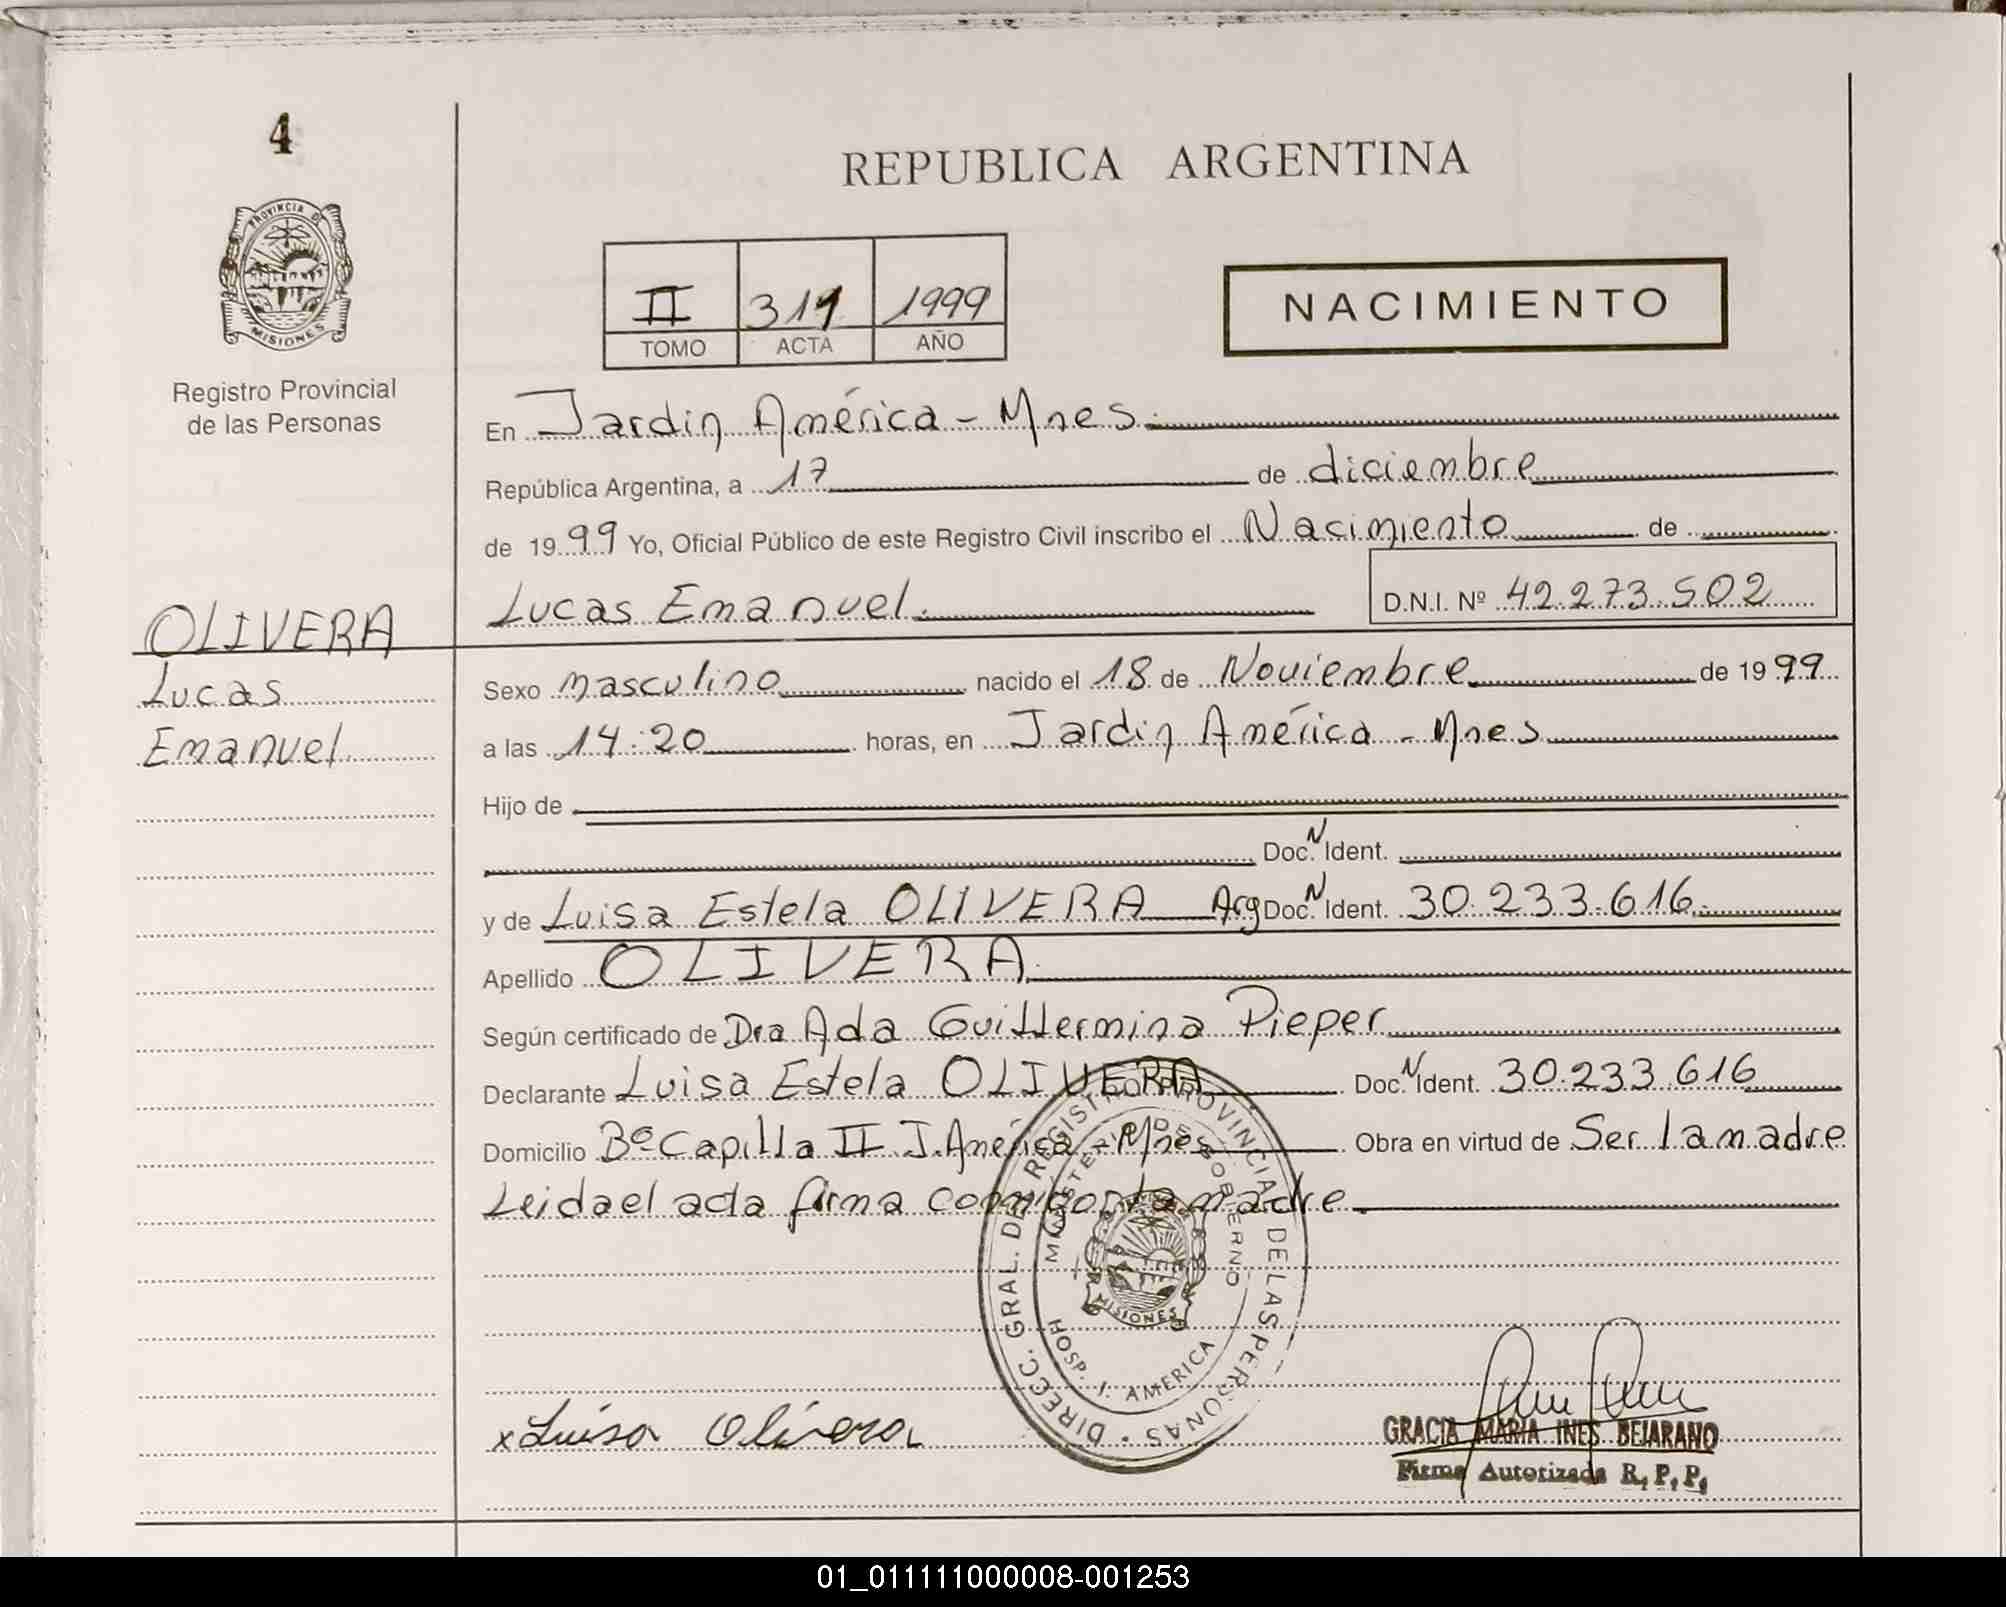 4
REPUBLICA ARGENTINA
PROVINCIA DE
MISIONES
Registro Provincial
de las Personas
II 311 1999
TOMO ACTA AÑO
NACIMIENTO
En Jardin América - Mnes.
República Argentina, a 17 de diciembre
de 1999 Yo, Oficial Público de este Registro Civil inscribo el Nacimiento de
Lucas Emanuel. D.N.I. Nº 42.273.502
OLIVERA
Lucas
Emanuel.
Sexo masculino nacido el 18 de Noviembre de 1999
a las 14:20 horas, en Jardin América - Mnes
Hijo de
Doc. N Ident.
y de Luisa Estela OLIVERA Arg Doc. N Ident. 30.233.616
Apellido OLIVERA
Según certificado de Dra Ada Guillermina Pieper
Declarante Luisa Estela OLIVERA Doc. N Ident. 30.233.616
Domicilio Bº Capilla II J. América - Mnes Obra en virtud de Ser la madre
Leida el acta firma conmigo la madre
DIRECC. GRAL. DE REGISTRO PROVINCIAL DE LAS PERSONAS
MINISTERIO DE GOBIERNO
MISIONES
HOSP. J. AMERICA
x Luisa Olivera
GRACIA MARIA INES BEJARANO
Firma Autorizada R.P.P.
01_011111000008-001253